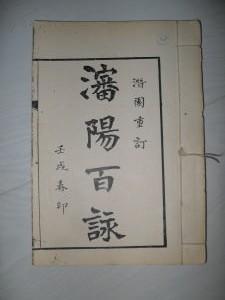 潛園重訂
瀋陽百詠
壬戌春印